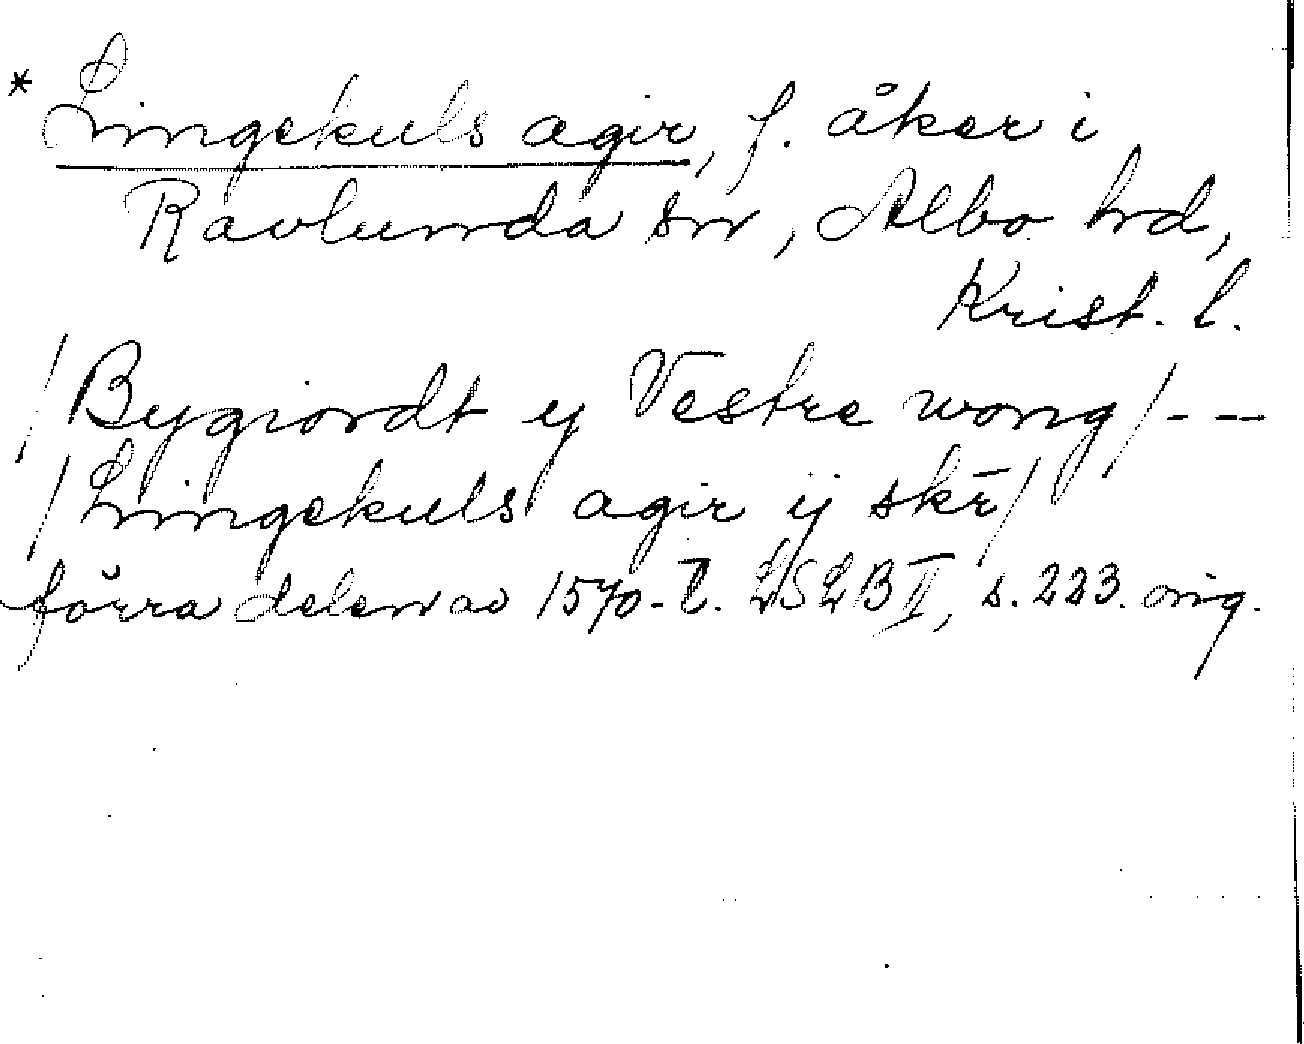 * Lingekuls agir, f. åker i
Ravlunda sn, Albo hd,
Krist. l.
/Bygiordt ij Vestre wong/---
/Lingekuls agir ij skr̄/
förra delen av 1570-t. LSLB II, s. 223. orig.